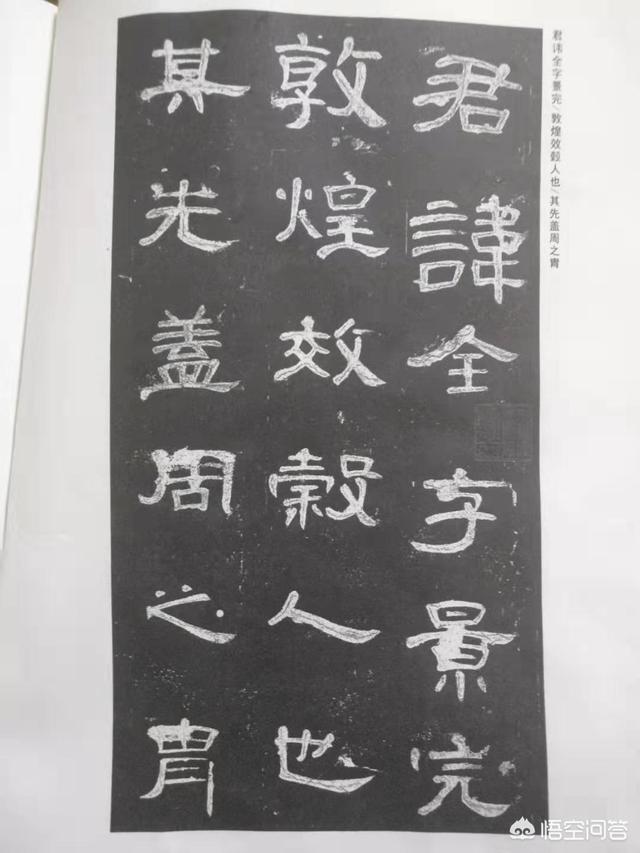 君諱全字景完
敦煌效穀人也
其先盖周之胄
君讳全字景完/敦煌效穀人也/其先盖周之胄
悟空问答